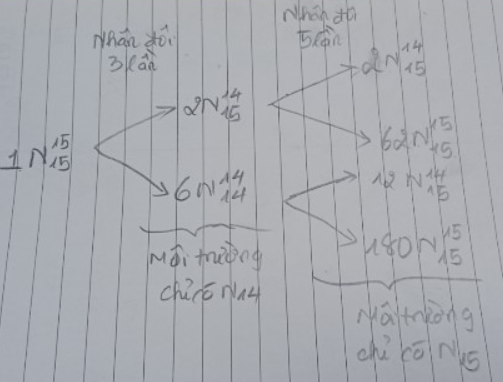 Nhân đôi
3 lần
Nhân đôi
5 lần
1 N15/15
2N14/15
6N14/14
2N14/15
62N15/15
12N14/15
180N15/15
Môi trường
chỉ có N14
Môi trường
chỉ có N15